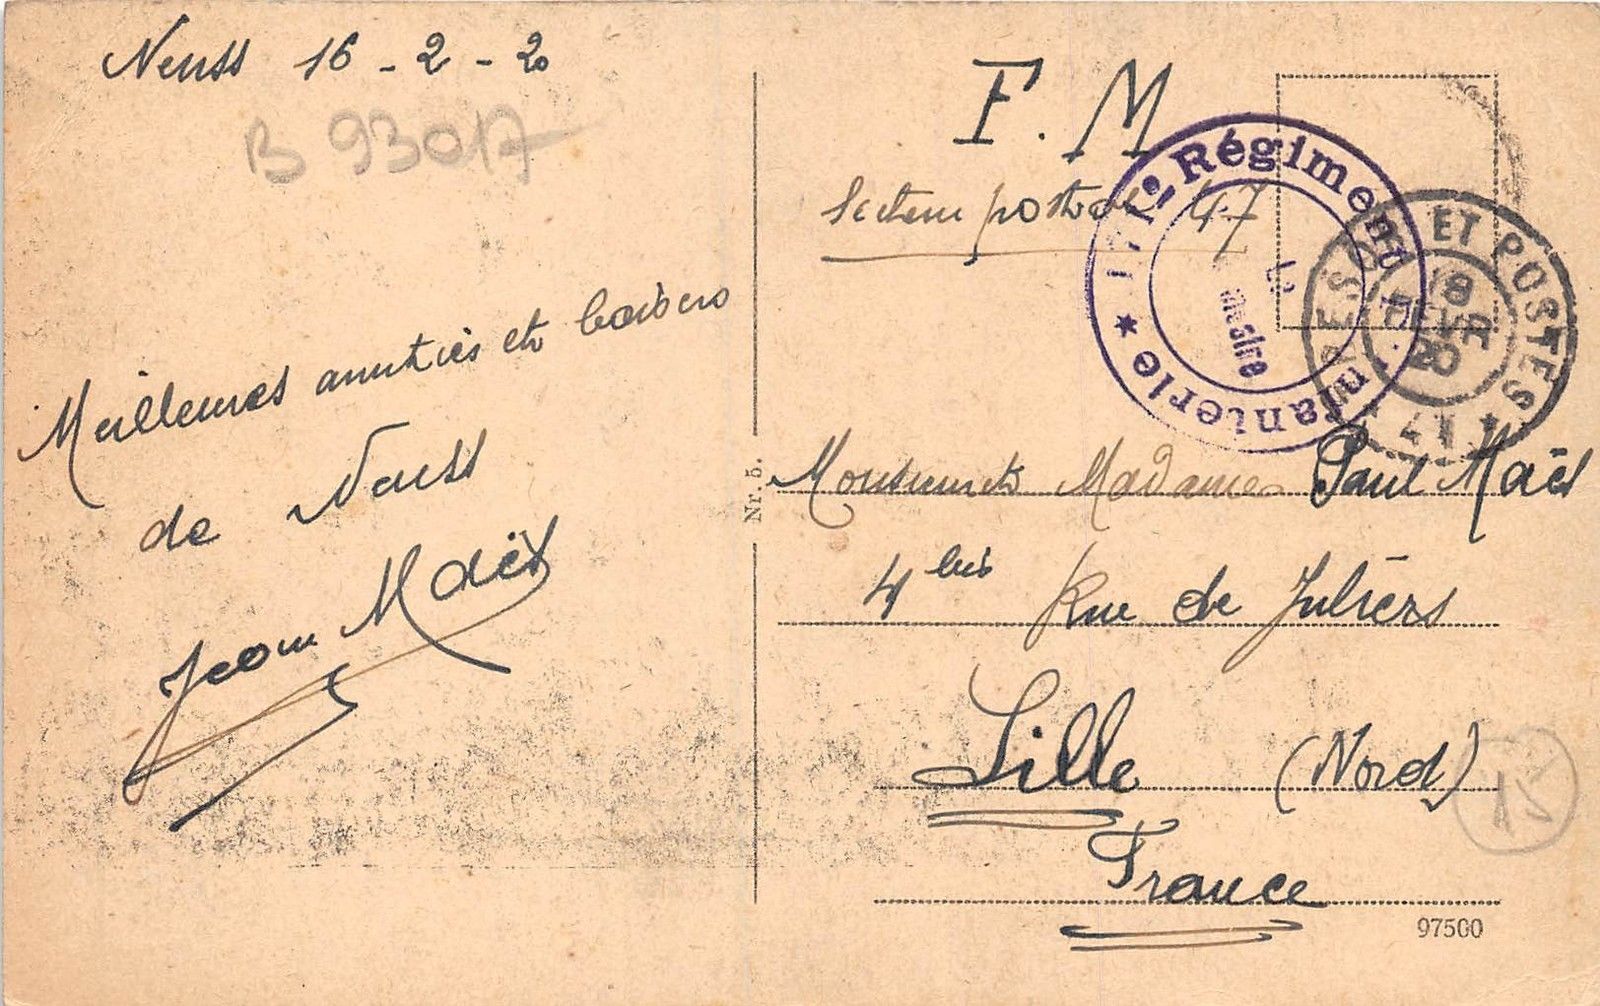 Neuss 16 - 2 - 20
B 93017
Meilleures amitiés et baisers
de Neuss
Jean Maës
Nr. 5.
F. M
Secteur postal 47
Régiment d'Infanterie ★
Le
* TRESOR ET POSTES *
18
FEVR
20
47
Monsieur et Madame Paul Maës
4 bis Rue de Juliers
Lille (Nord)
France
15
97500